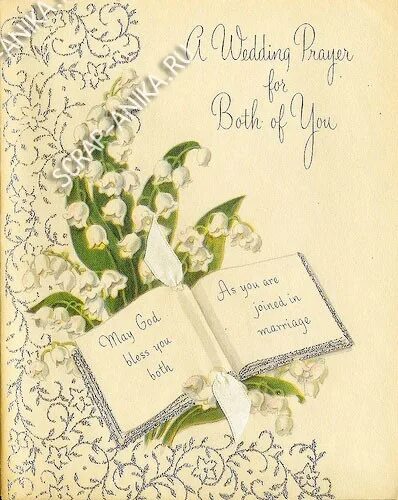 A Wedding Prayer
for
Both of You
May God
bless you
both
As you are
joined in
marriage
SCRAP-ANIKA.RU